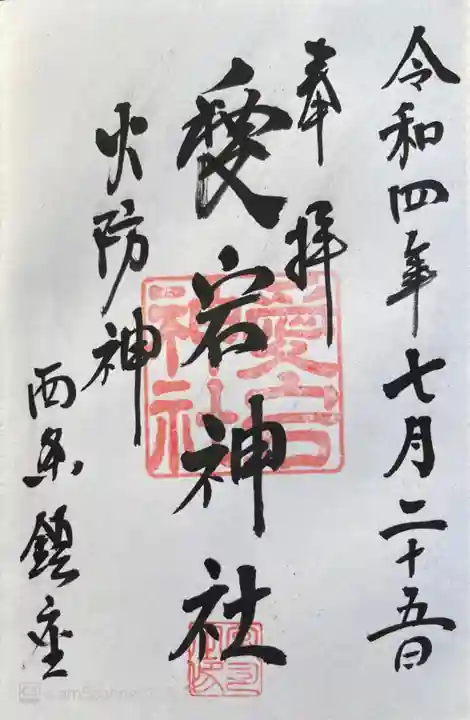 令和四年七月二十五日
奉拝
愛宕神社
愛宕
神社
火防神
西条鎮座